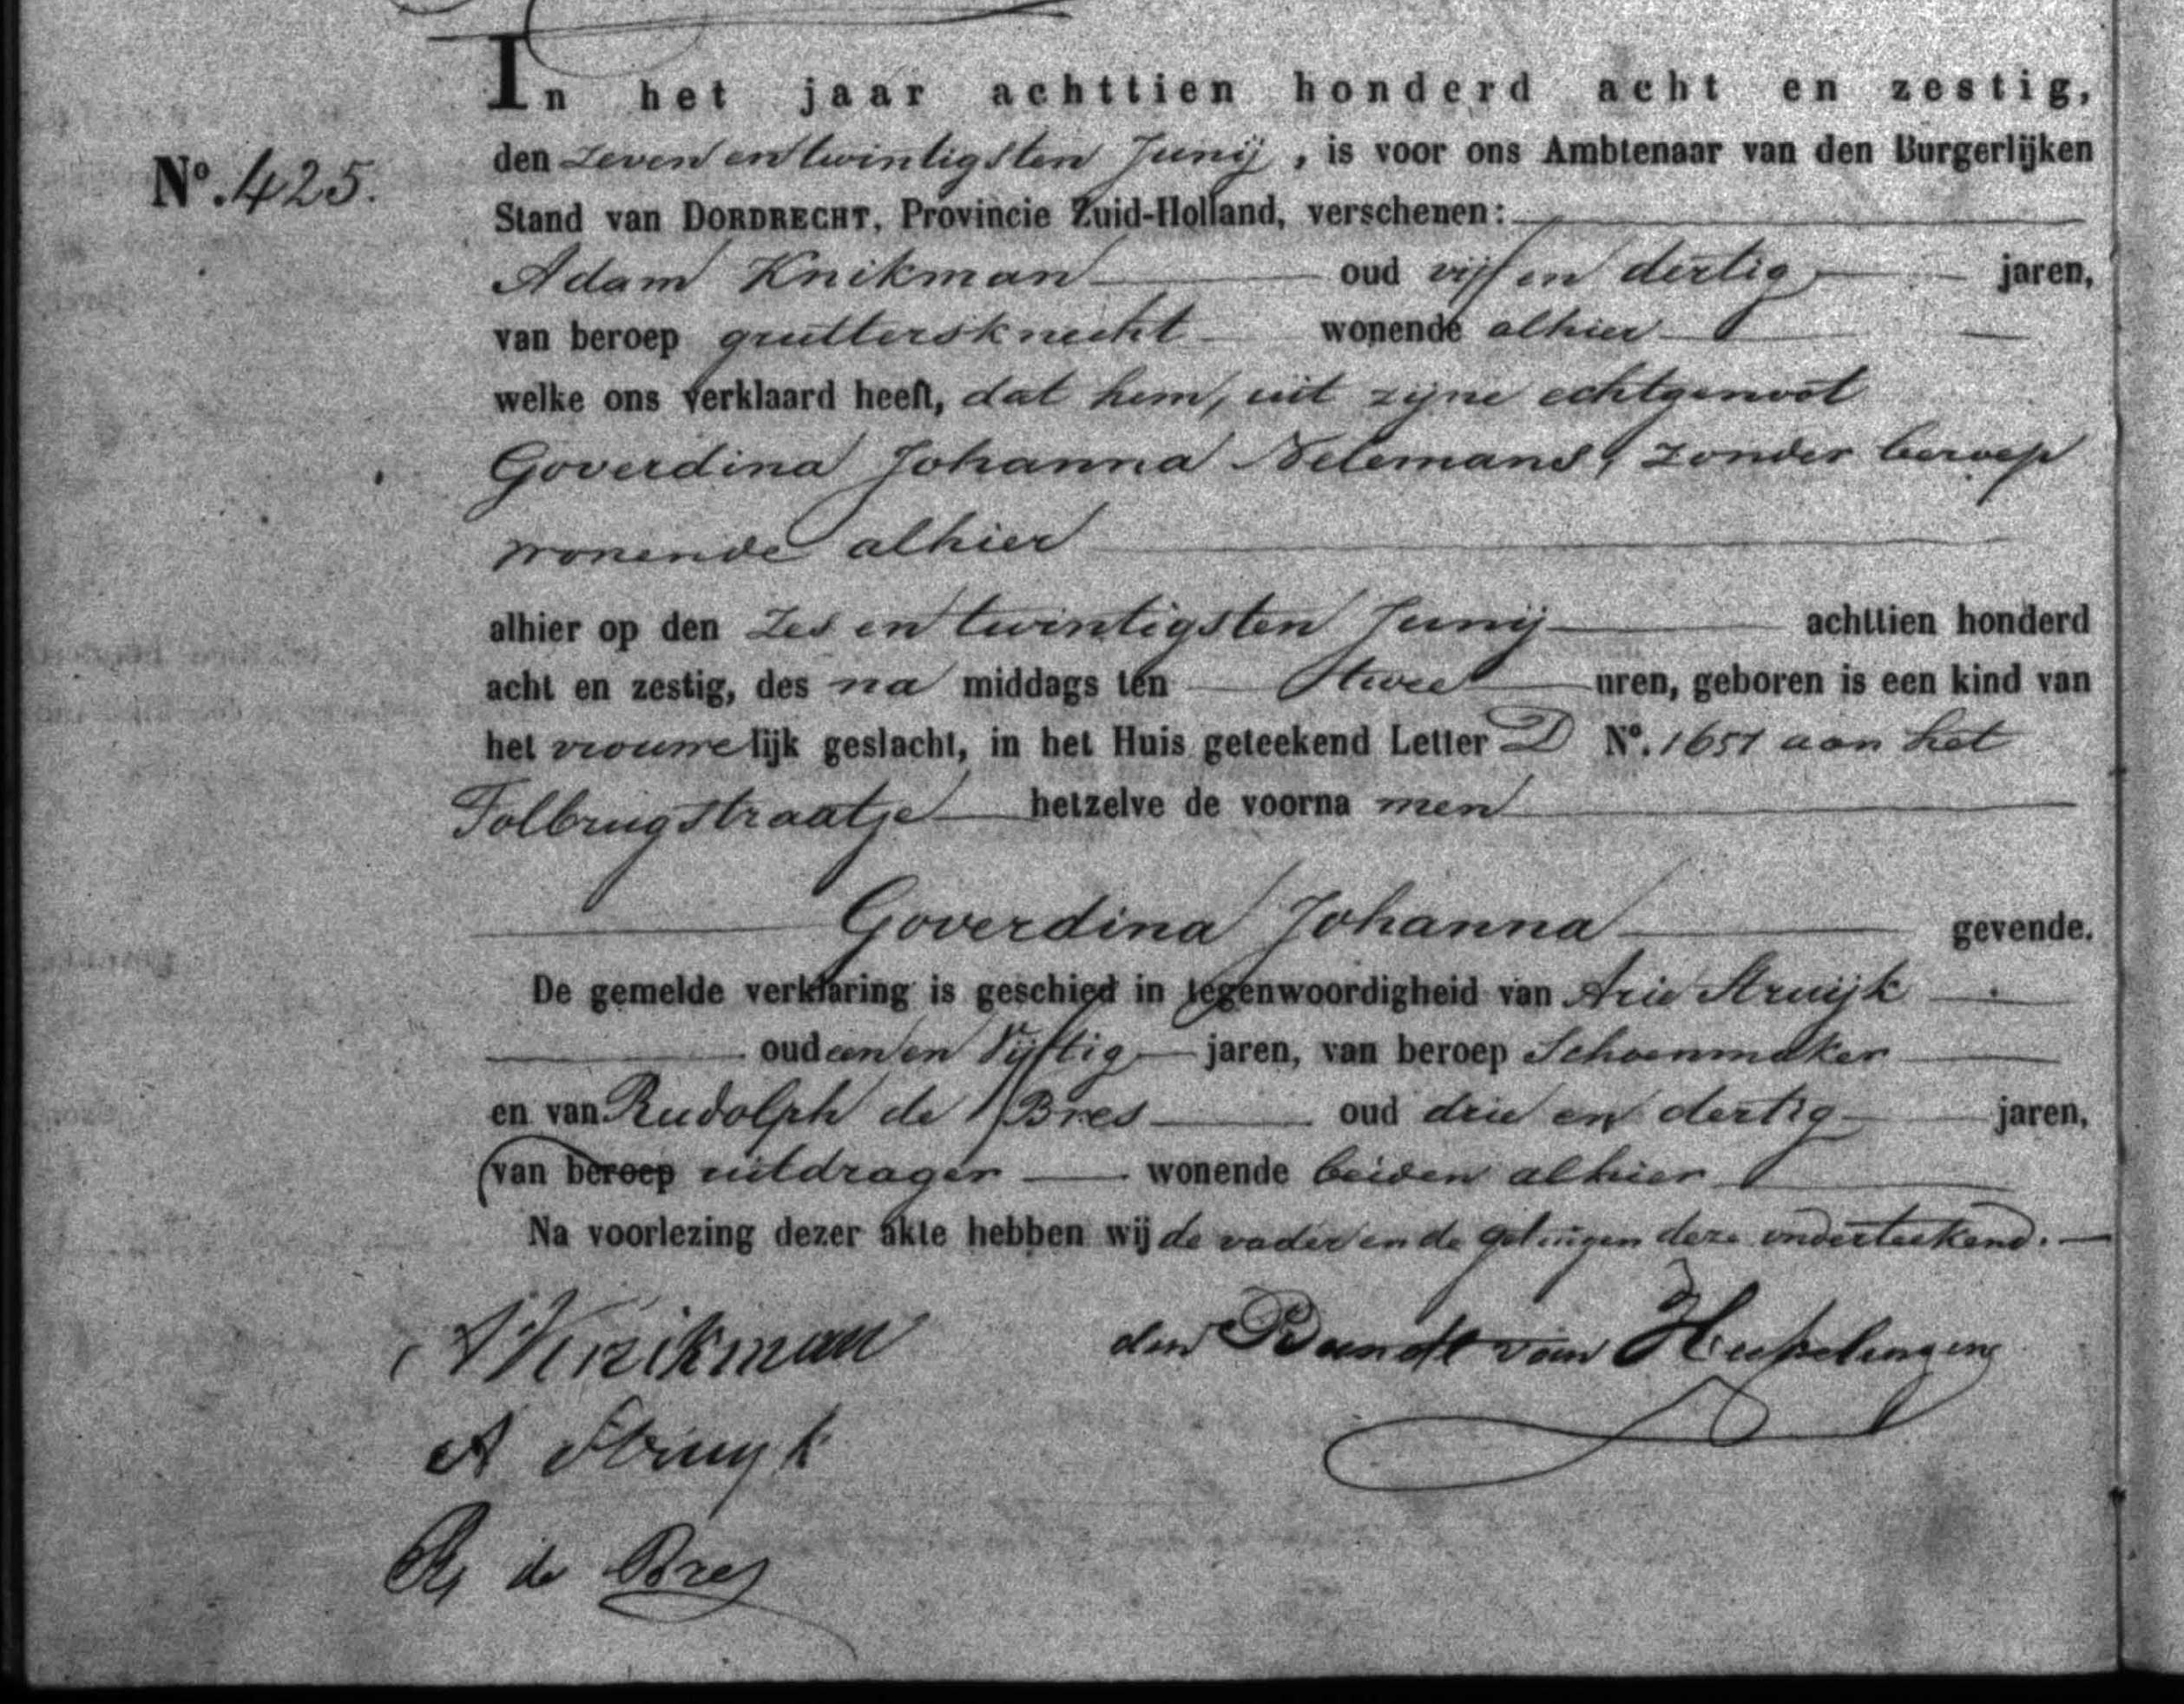 In het jaar achttien honderd acht en zestig,
No. 425.
den zeven en twintigsten Junij, is voor ons Ambtenaar van den Burgerlijken
Stand van DORDRECHT, Provincie Zuid-Holland, verschenen:
Adam Knikman oud vijf en dertig jaren,
van beroep gruttersknecht wonende alhier
welke ons verklaard heeft, dat hem, uit zijne echtgenoot
Goverdina Johanna Nelemans, zonder beroep
wonende alhier
alhier op den Zes en twintigsten Junij achttien honderd
acht en zestig, des na middags ten twee uren, geboren is een kind van
het vrouwelijk geslacht, in het Huis geteekend Letter D No. 1651 aan het
Tolbrugstraatje hetzelve de voorna men
Goverdina Johanna gevende.
De gemelde verklaring is geschied in tegenwoordigheid van Arie Struijk
oud een en Vijftig jaren, van beroep Schoenmaker
en van Rudolph de Bres oud drie en dertig jaren,
van beroep uitdrager wonende beiden alhier
Na voorlezing dezer akte hebben wij de vader en de getuigen deze onderteekend.
A Knikman den Bandt van
A Struyk
R de Bres